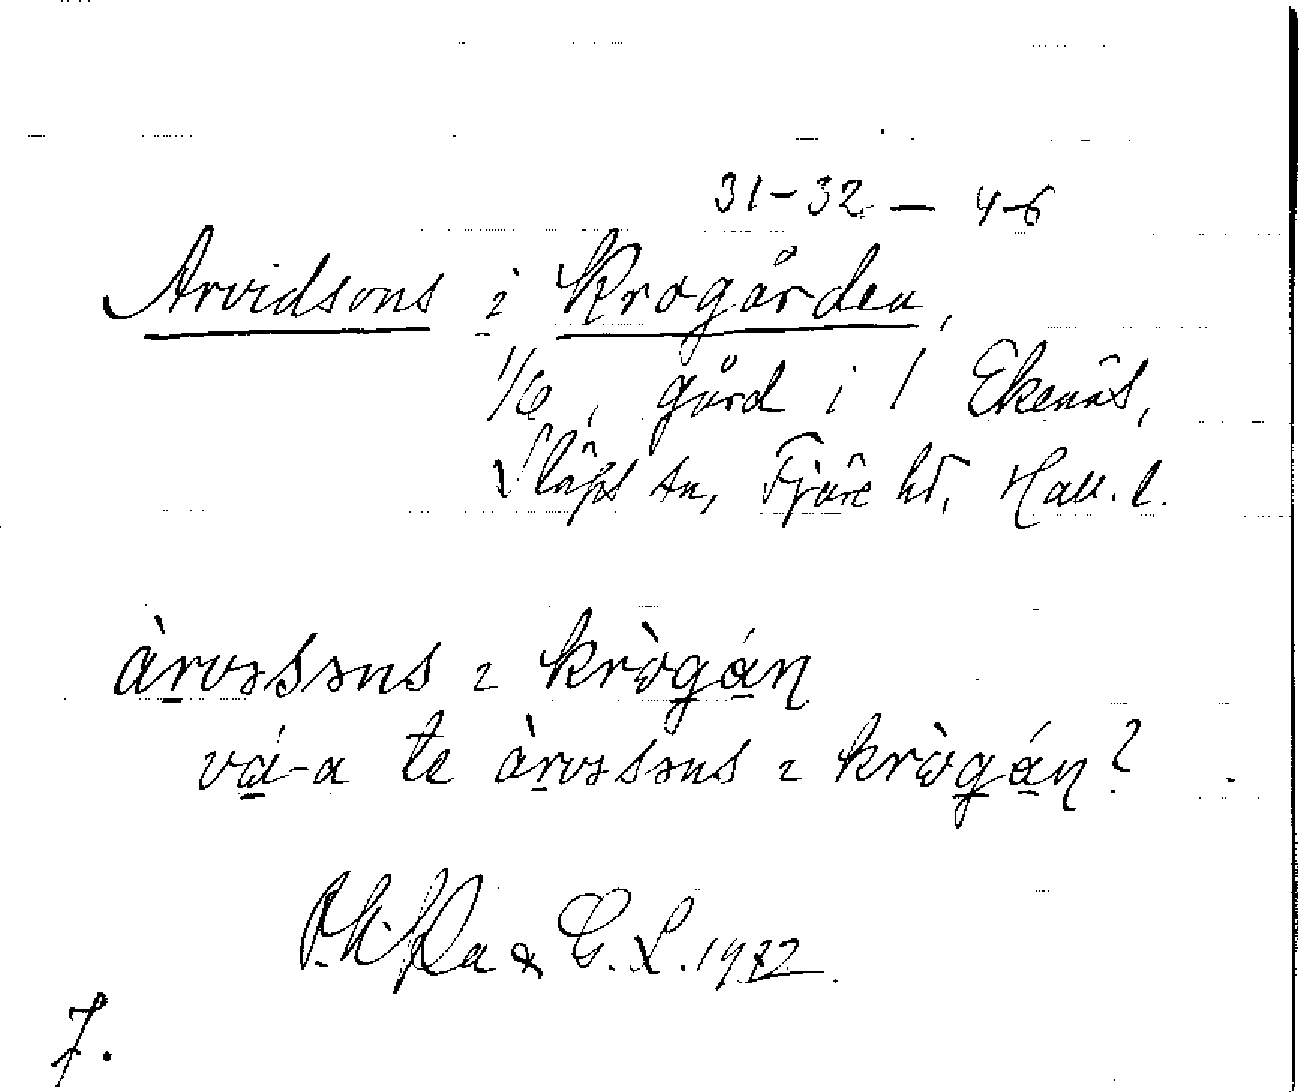 31-32 — 4-6
Arvidsons i Krogården,
1/6, gård i 1 Ekenäs,
Släps sn, Fjäre hd, Hall. l.
àrvəssəns ɩ krògán
vá-a te àrvəssəns ɩ krògán?
& G. L. 1932.
7.